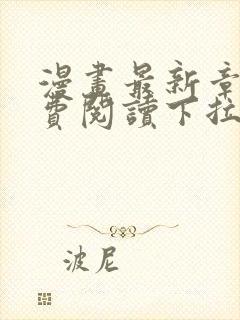 漫畫最新章
費閱讀下拉
波尼